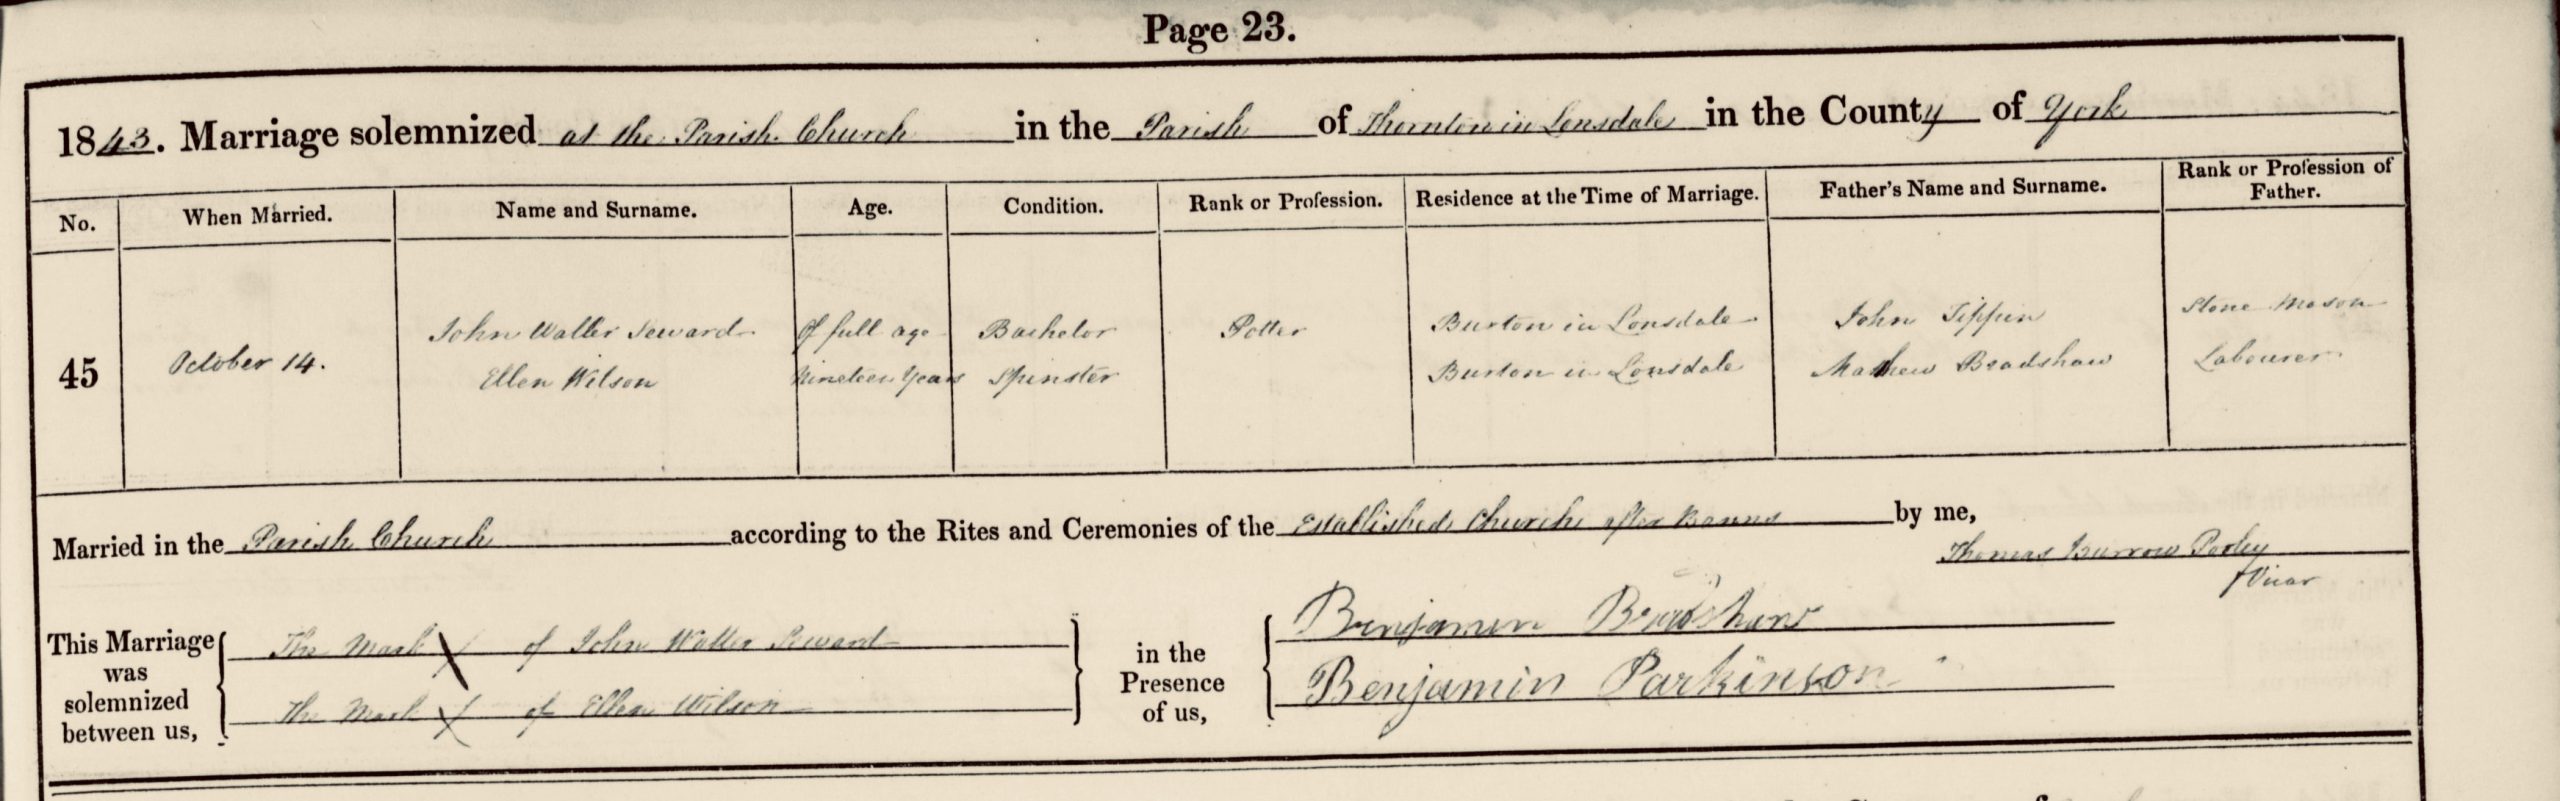 Page 23.
1843. Marriage solemnized at the Parish Church in the Parish of Thornton in Lonsdale in the County of York
No. When Married. Name and Surname. Age. Condition. Rank or Profession. Residence at the Time of Marriage. Father's Name and Surname. Rank or Profession of Father.
45 October 14. John Waller Seward Of full age Bachelor Potter Burton in Lonsdale John Tippin Stone Mason
Ellen Wilson Nineteen Years Spinster Burton in Lonsdale Mathew Bradshaw Labourer
Married in the Parish Church according to the Rites and Ceremonies of the Established Church after Banns by me,
Thomas Burrow
Vicar
This Marriage was solemnized between us, The Mark X of John Waller Seward
The Mark X of Ellen Wilson
in the Presence of us, Benjamin Bradshaw
Benjamin Parkinson